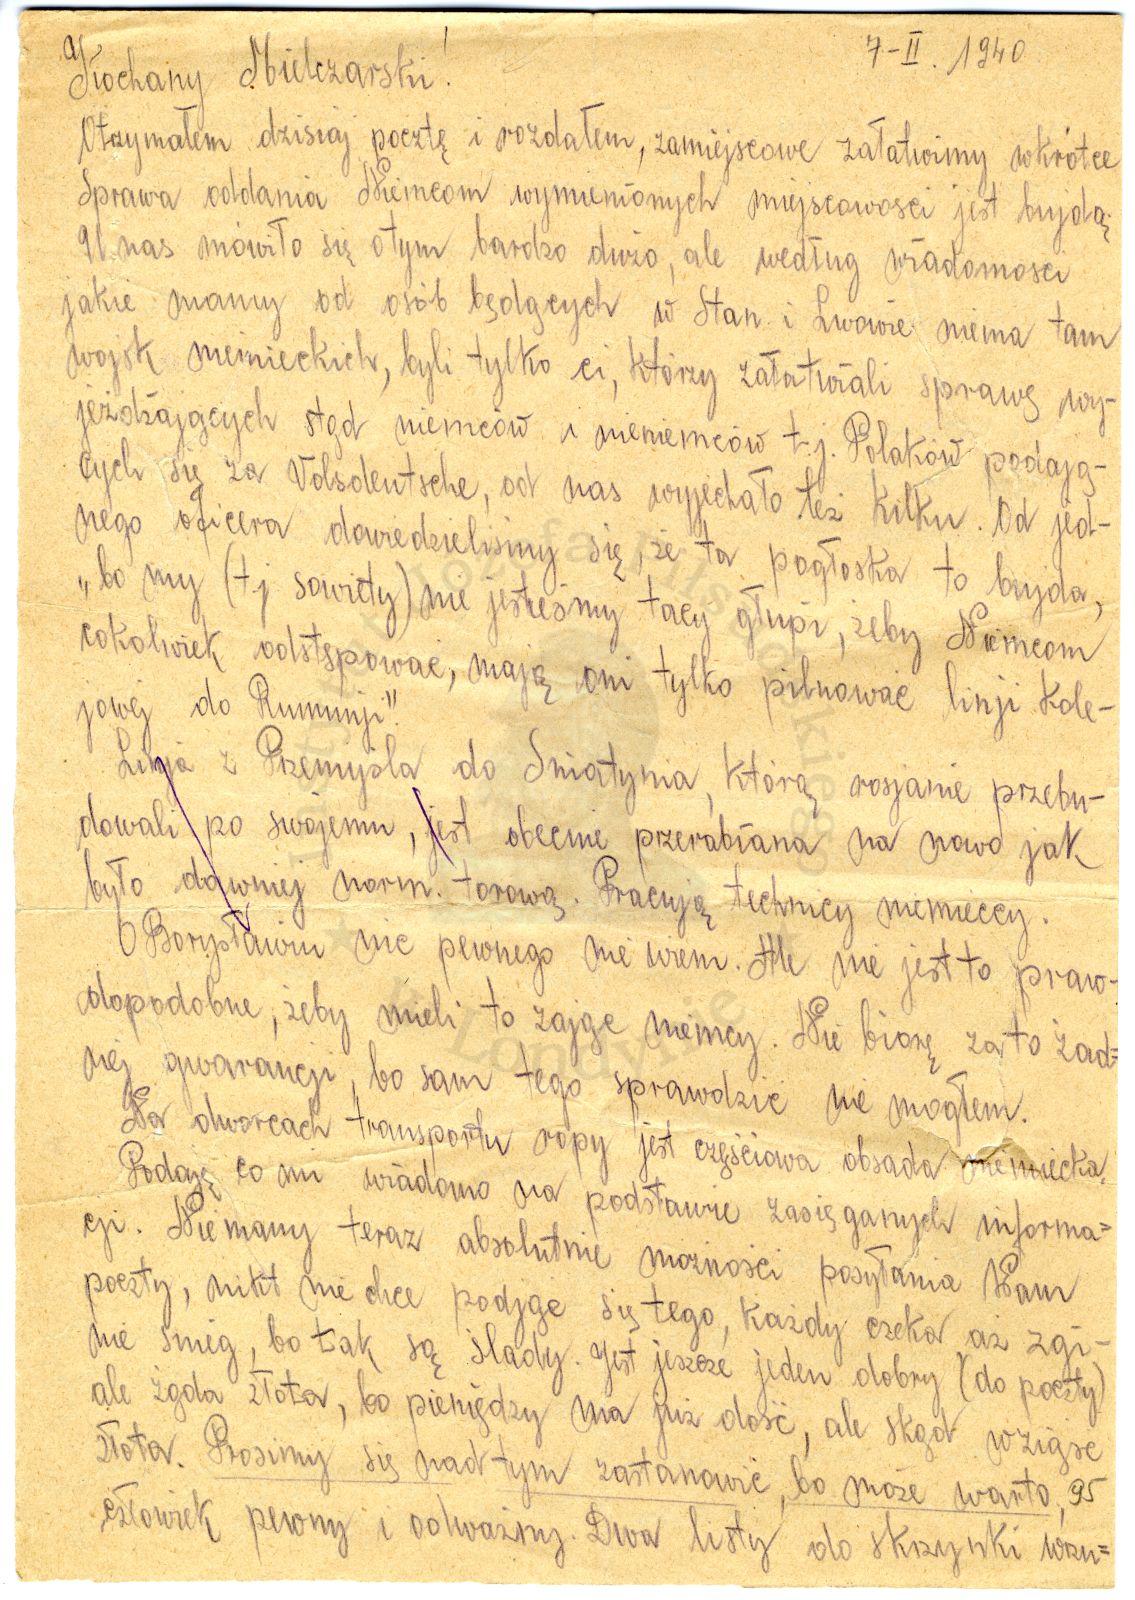 a
7-II. 1940
Kochany Mielczarski!
Otrzymałem dzisiaj pocztę i rozdałem, zamiejscowe załatwimy wkrótce
Sprawa oddania Niemcom wymienionych miejscowości jest bujdą;
U nas mówiło się otym bardzo dużo, ale według wiadomości
jakie mamy od osób będących w Stan. i Lwowie niema tam
wojsk niemieckich, byli tylko ci, którzy załatwiali sprawę wy-
jeżdżających stąd niemców i nieniemców t.j. Polaków podają-
cych się za Volsdeutsche, od nas wyjechało też kilku. Od jed-
nego oficera dowiedzieliśmy się, że ta pogłoska to bujda,
„bo my (t.j sowiety) nie jesteśmy tacy głupi, żeby Niemcom
cokolwiek odstępować, mają oni tylko pilnować linji kole-
jowej do Rumunji".
Linja z Przemyśla do Śniatynia, którą rosjanie przebu-
dowali po swojemu, jest obecnie przerabiana na nowo jak
było dawniej norm. torową. Pracują technicy niemieccy.
O Borysławiu nic pewnego nie wiem. Ale nie jest to praw-
dopodobne, żeby mieli to zająć niemcy. Nie biorę za to żad=
nej gwarancji, bo sam tego sprawdzić nie mogłem.
Na dworcach transportu ropy jest częściowa obsada niemiecka.
Podaję co mi wiadomo na podstawie zasięganych informa=
cji. Nie mamy teraz absolutnie możności posyłania Wam
poczty, nikt nie chce podjąć się tego, każdy czeka aż zgi-
nie śnieg, bo tak są ślady. Jest jeszcze jeden dobry (do poczty)
ale żąda złota, bo pieniędzy ma już dość, ale skąd wziąść
złota. Prosimy się nad tym zastanowić, bo może warto, 95
człowiek pewny i odważny. Dwa listy do skrzynki wrzu=
Instytut Józefa Piłsudskiego
w Londynie